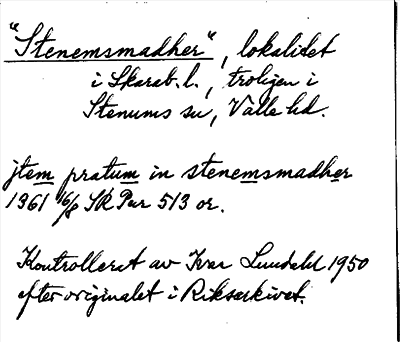 "Stenemsmadher", lokalitet
i Skarab. l., troligen i
Stenums sn, Valle hd.
jtem pratum in stenemsmadher
1361 16/8 SK Per 513 or.
Kontrollerat av Ivar Lundahl 1950
efter originalet i Riksarkivet.